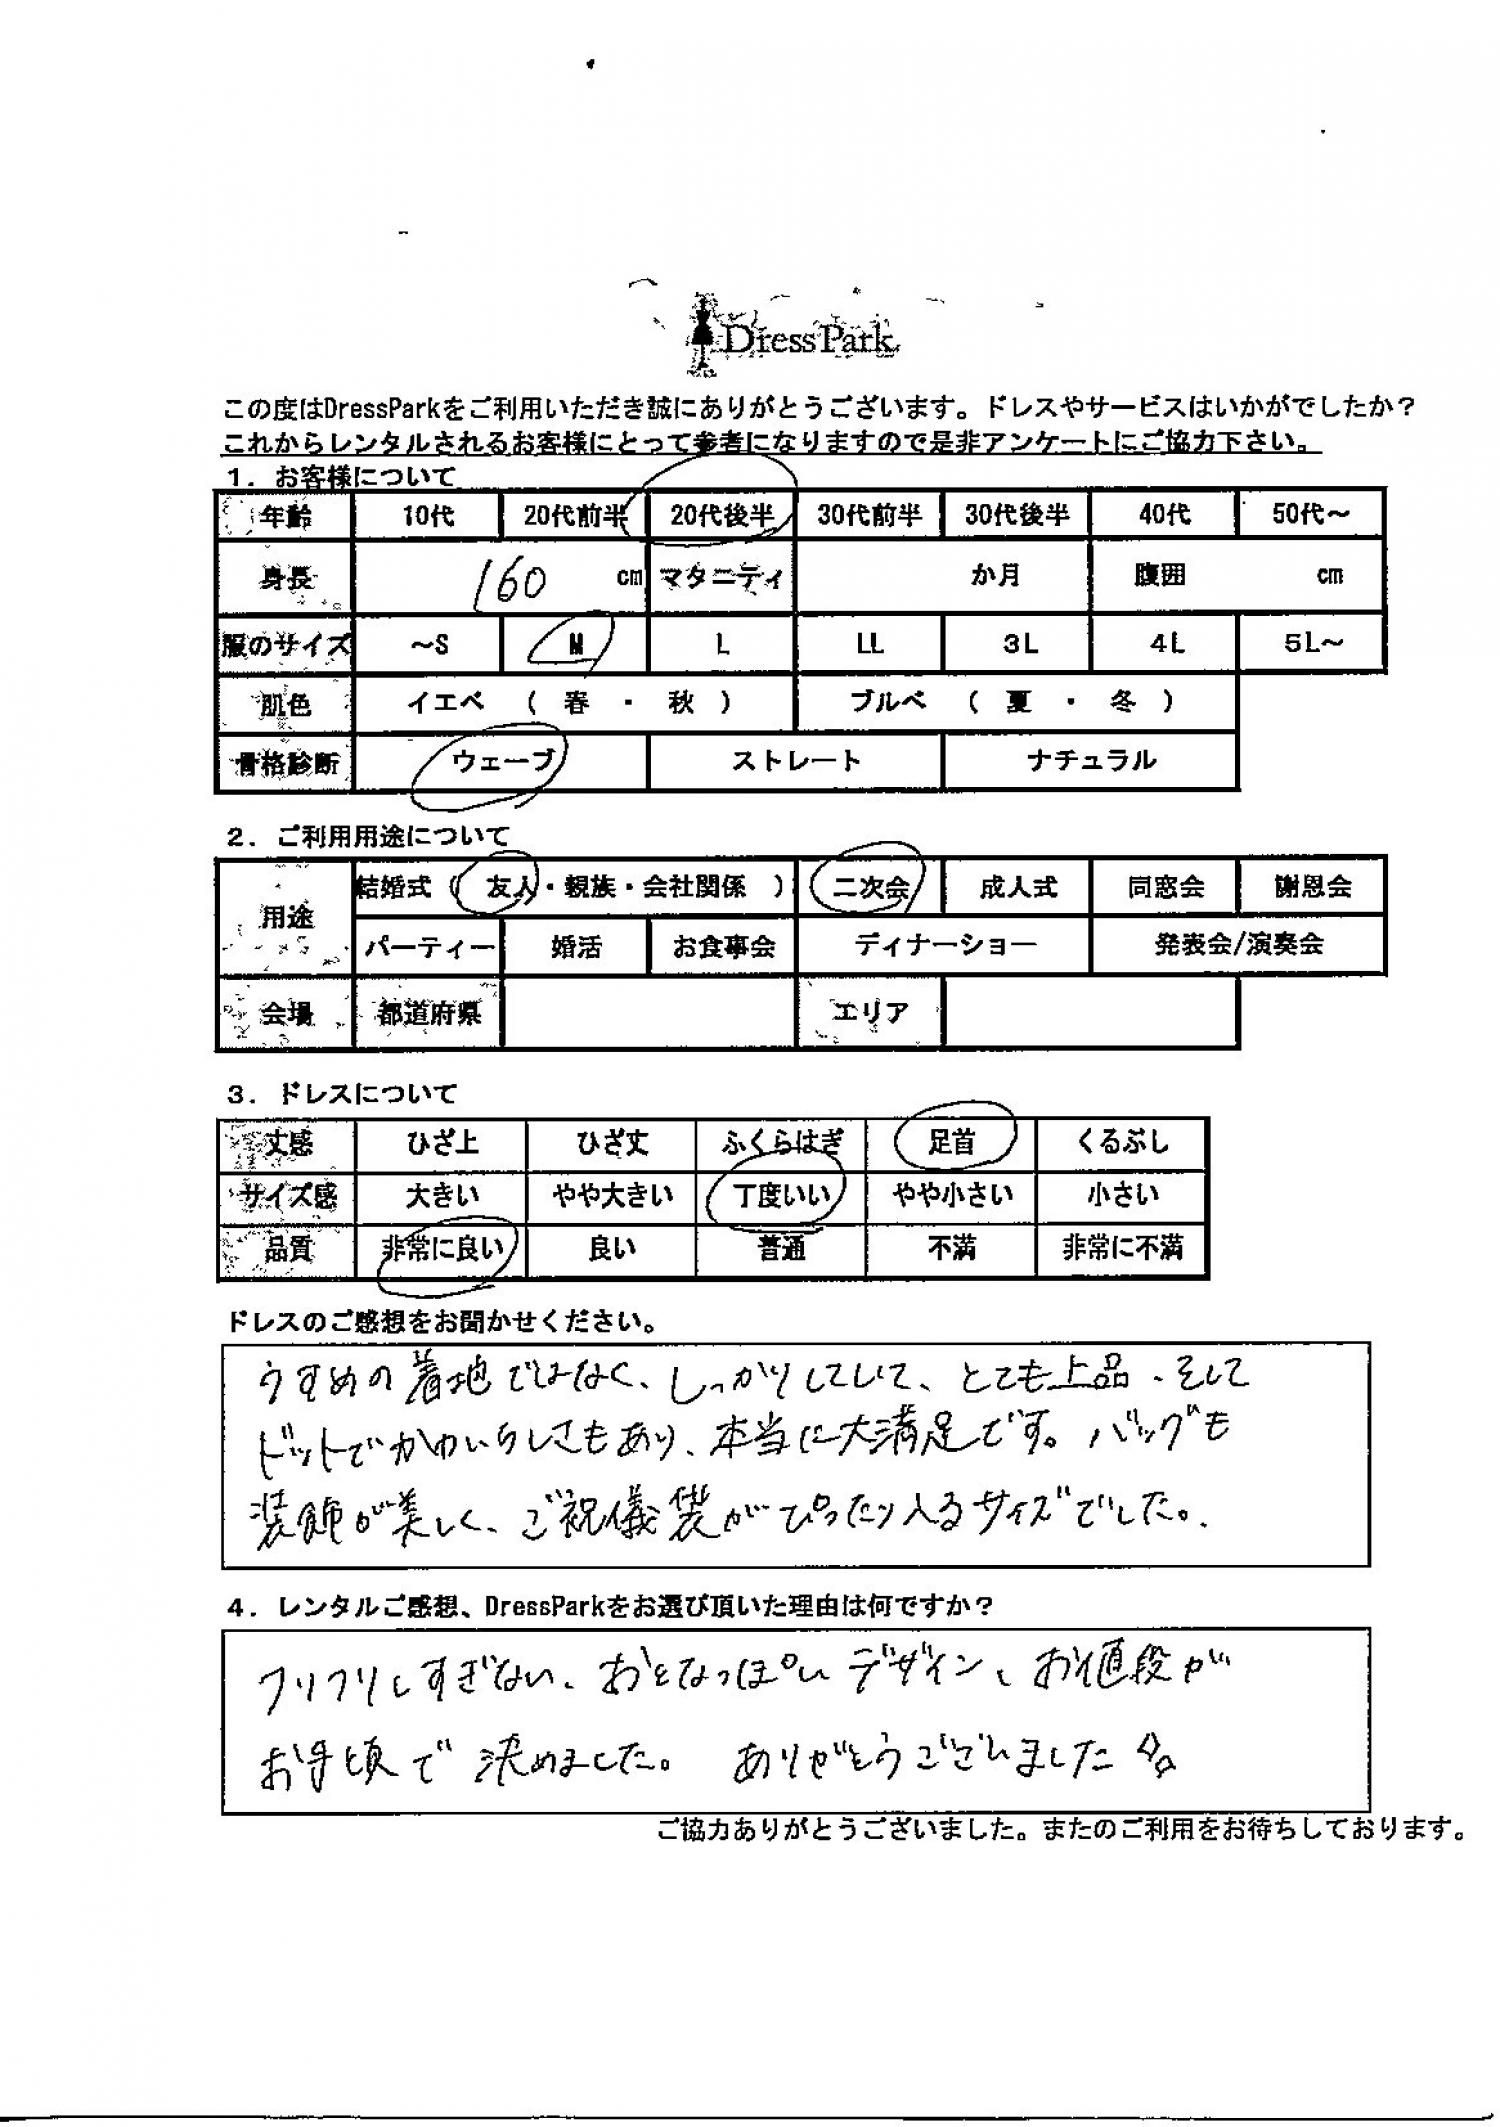 DressPark
この度はDressParkをご利用いただき誠にありがとうございます。ドレスやサービスはいかがでしたか？
これからレンタルされるお客様にとって参考になりますので是非アンケートにご協力下さい。
1．お客様について
年齢 10代 20代前半 20代後半 30代前半 30代後半 40代 50代～
身長 160 cm マタニティ か月 腹囲 cm
服のサイズ ～S M L LL 3L 4L 5L～
肌色 イエベ （ 春 ・ 秋 ） ブルベ （ 夏 ・ 冬 ）
骨格診断 ウェーブ ストレート ナチュラル
2．ご利用用途について
用途 結婚式（ 友人・親族・会社関係 ） 二次会 成人式 同窓会 謝恩会
パーティー 婚活 お食事会 ディナーショー 発表会/演奏会
会場 都道府県 エリア
3．ドレスについて
丈感 ひざ上 ひざ丈 ふくらはぎ 足首 くるぶし
サイズ感 大きい やや大きい 丁度いい やや小さい 小さい
品質 非常に良い 良い 普通 不満 非常に不満
ドレスのご感想をお聞かせください。
うすめの着地ではなく、しっかりしていて、とても上品、そして
ドットでかわいらしさもあり、本当に大満足です。バッグも
装飾が美しく、ご祝儀袋がぴったり入るサイズでした。
4．レンタルご感想、DressParkをお選び頂いた理由は何ですか？
フリフリしすぎない、おとなっぽいデザイン、お値段が
お手頃で決めました。 ありがとうございました
ご協力ありがとうございました。またのご利用をお待ちしております。